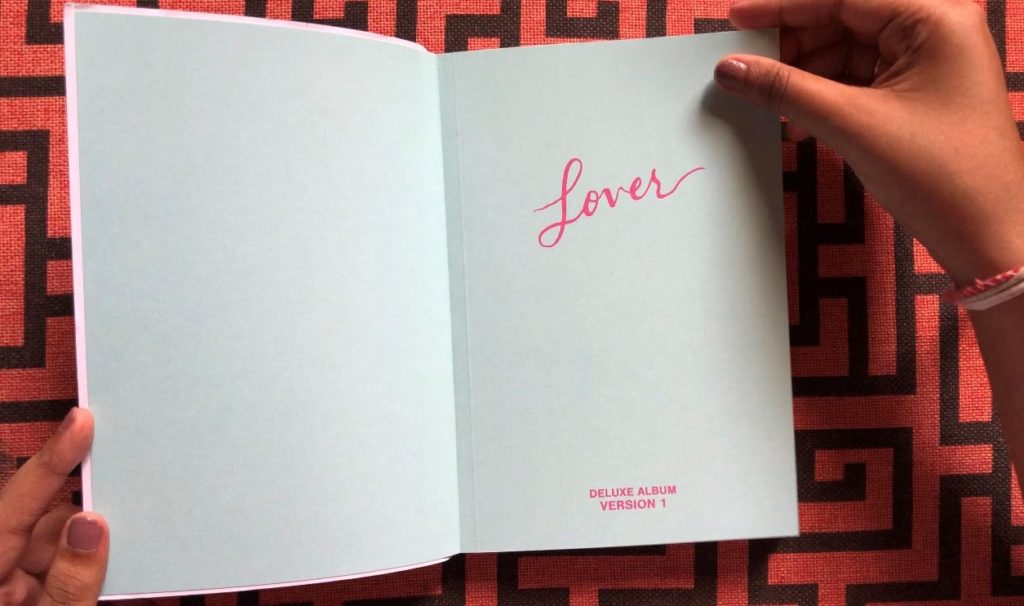 Lover
DELUXE ALBUM
VERSION 1